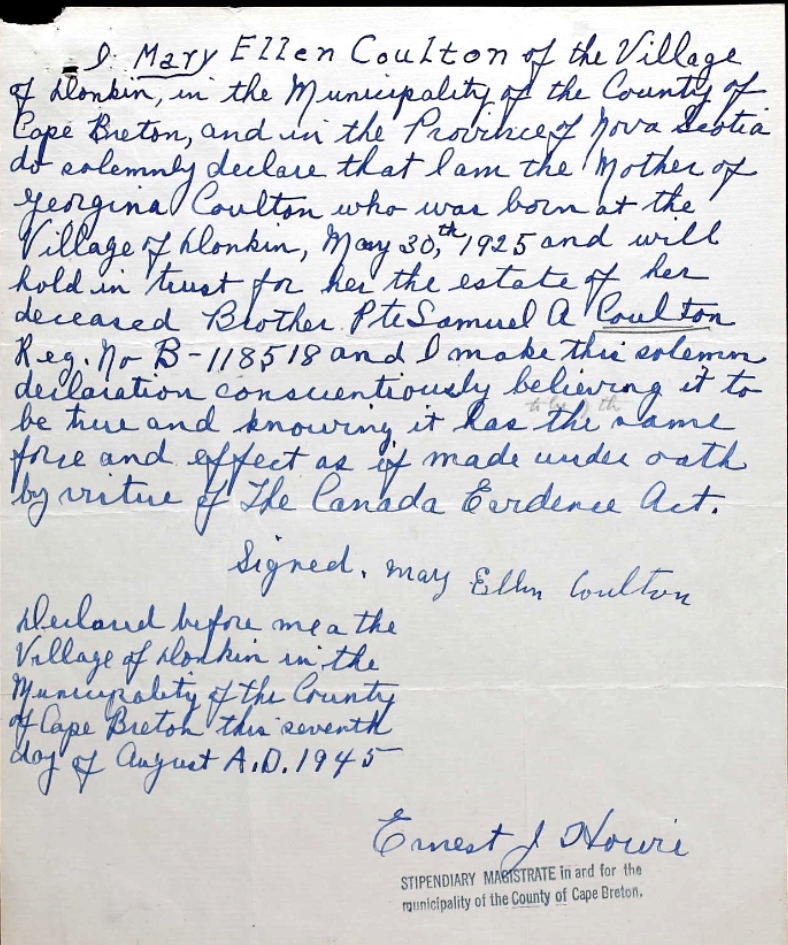 I Mary Ellen Coulton of the Village
of Donkin, in the Municipality of the County of
Cape Breton, and in the Province of Nova Scotia
do solemnly declare that I am the Mother of
Georgina Coulton who was born at the
Village of Donkin, May 30,th 1925 and will
hold in trust for her the estate of her
deceased Brother Pte Samuel A Coulton
Reg. No B-118518 and I make this solemn
declaration conscientiously believing it to
be true and knowing it has the same
force and effect as if made under oath
by virtue of The Canada Evidence Act.
Signed. Mary Ellen Coulton
Declared before me a the
Village of Donkin in the
Municipality of the County
of Cape Breton this seventh
day of August A.D. 1945
Ernest J Howie
STIPENDIARY MAGISTRATE in and for the
municipality of the County of Cape Breton.